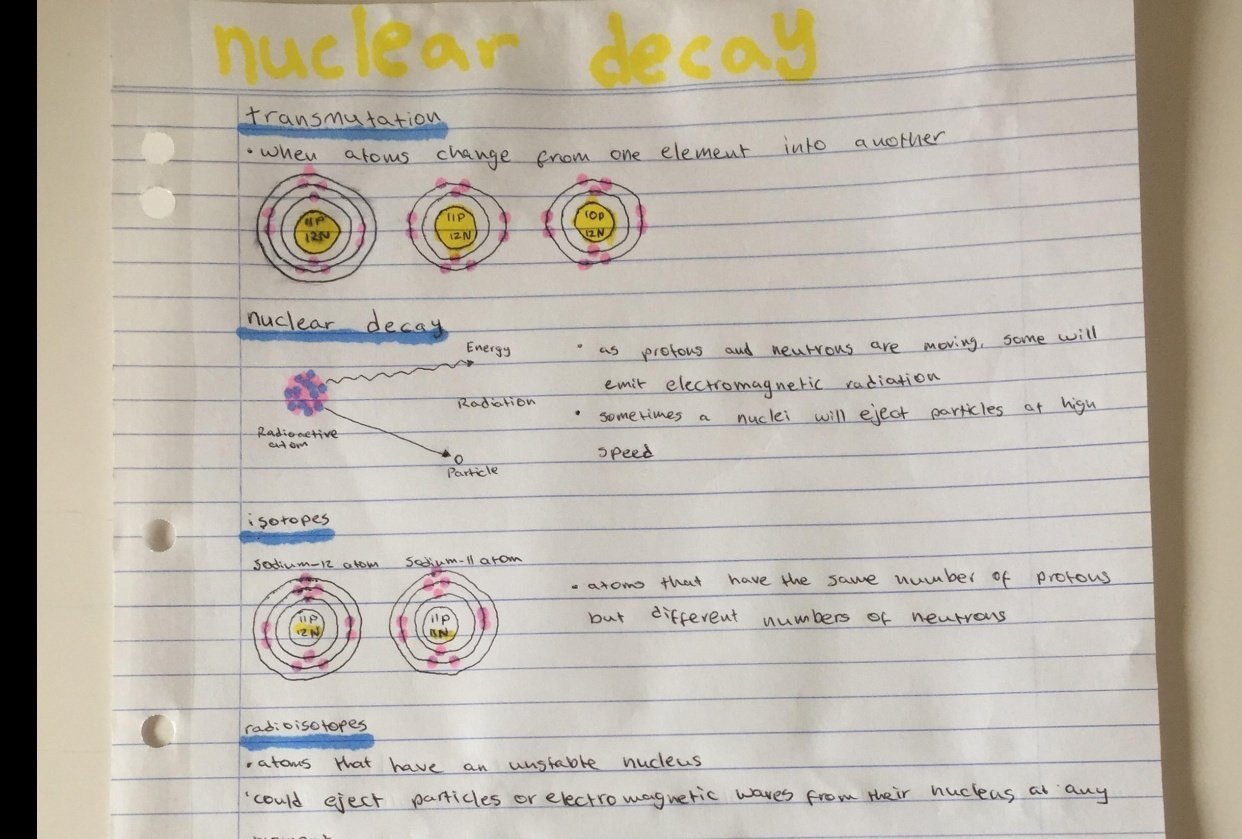 nuclear decay
transmutation
• when atoms change from one element into another
11P 11P 10P
12N 12N 12N
nuclear decay
Energy
• as protons and neutrons are moving, some will
emit electromagnetic radiation
Radiation
• sometimes a nuclei will eject particles at high
speed
Radioactive
atom
Particle
isotopes
Sodium-12 atom Sodium-11 atom
• atoms that have the same number of protons
but different numbers of neutrons
11P 11P
12N
radioisotopes
• atoms that have an unstable nucleus
• could eject particles or electromagnetic waves from their nucleus at any